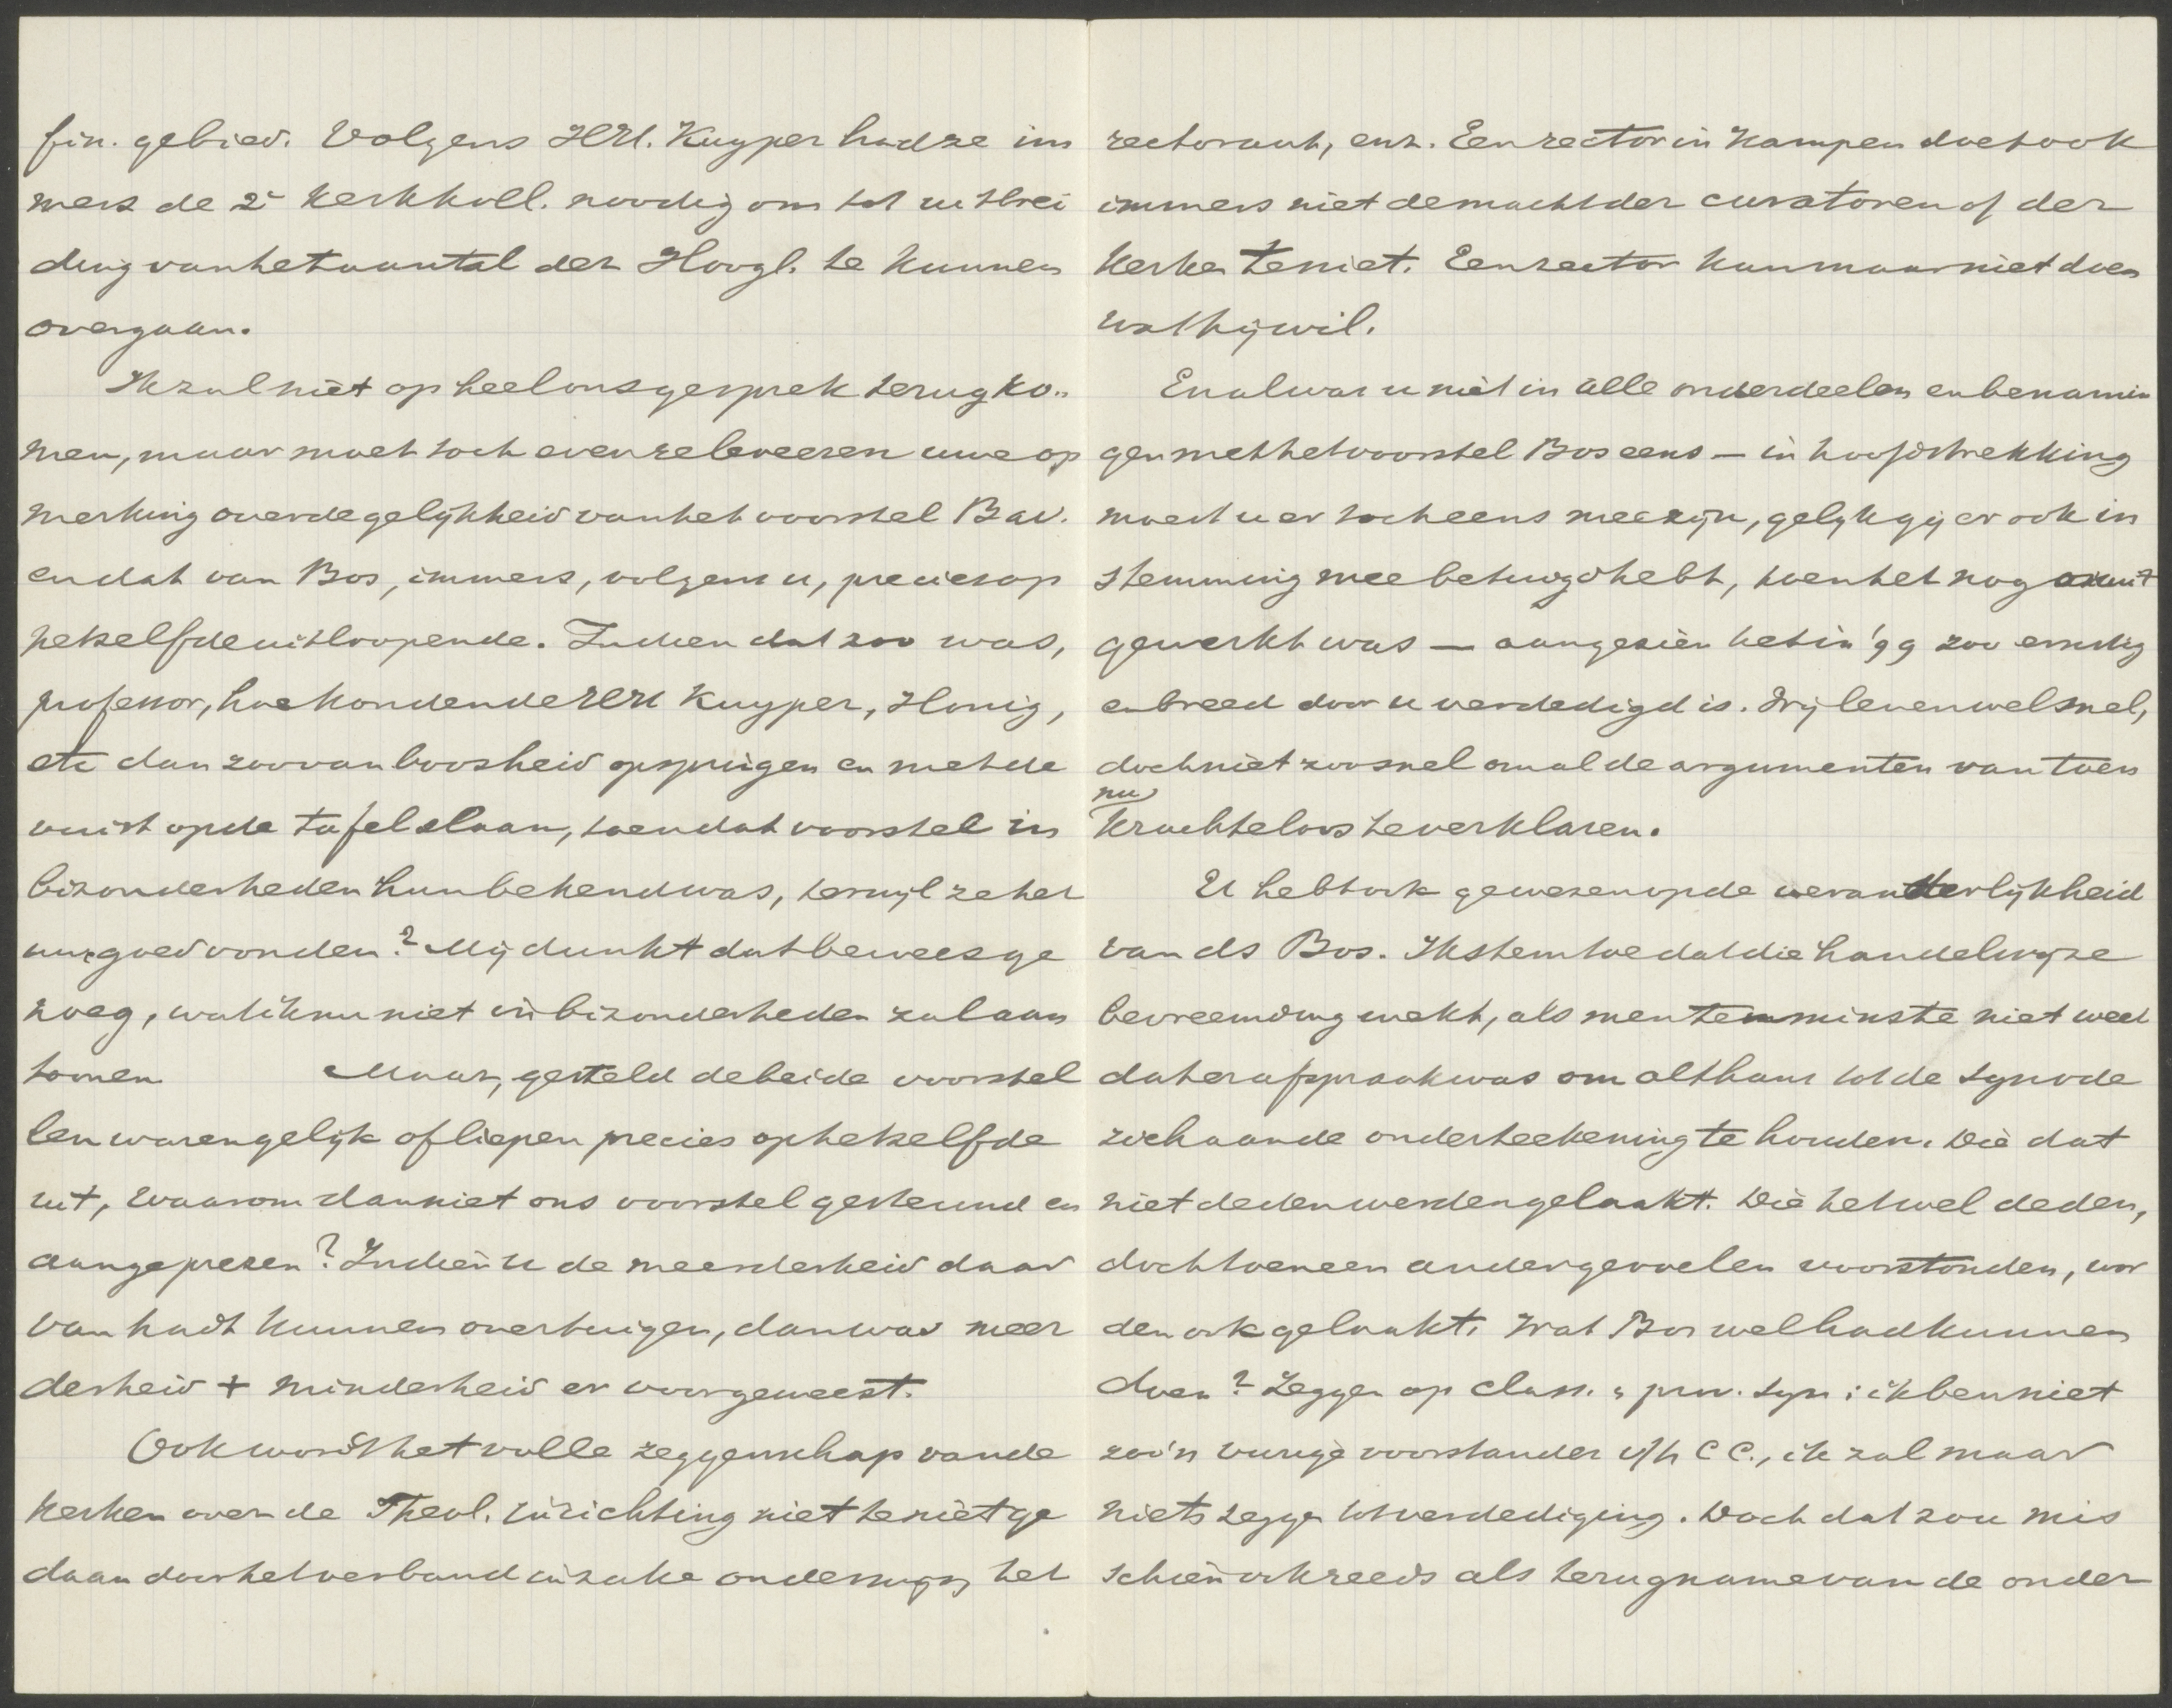 fin. gebied. Volgens HH. Kuyper had ze im
mers de 2e Kerkkoll. noodig om tot uitbrei
ding van het aantal der Hoogl. te kunnen
overgaan.
Ik zal niet op heel ons gesprek terugko-
men, maar moet toch even releveeren uwe op
merking over de gelijkheid van het voorstel Bav.
en dat van Bos, immers, volgens u, precies op
hetzelfde uitloopende. Indien dat zoo was,
professor, hoe konden de HH Kuyper, Honig,
etc dan zoo van boosheid opspringen en met de
vuist op de tafel slaan, toen dat voorstel in
bizonderheden hun bekend was, terwijl ze het
uwe goed vonden? Mij dunkt dat bewees ge
noeg, wat ik nu niet in bizonderheden zal aan
toonen. Maar, gesteld de beide voorstel
len waren gelijk of liepen precies op hetzelfde
uit, waarom dan niet ons voorstel gesteund en
aangeprezen? Indien u de meerderheid daar
van hadt kunnen overtuigen, dan was meer
derheid + minderheid er voor geweest.
Ook wordt het volle zeggenschap van de
kerken over de Theol. inrichting niet te niet ge
daan door het verband inzake onderwijs, het
rectoraat, enz. Een rector in Kampen doet ook
immers niet de macht der curatoren of der
Kerken te niet. Een rector kan maar niet doen
wat hij wil.
En al was u niet in alle onderdeelen en benamin
gen met het voorstel Bos eens — in hoofdstrekking
moest u er toch eens mee zijn, gelijk gij er ook in
stemming mee betuigd hebt, toen het nog
gewerkt was — aangezien het in '99 zoo ernstig
en breed door u verdedigd is. Wij leven wel snel,
doch niet zoo snel om al de argumenten van toen
nu
krachteloos te verklaren.
U hebt ook gewezen op de veranderlijkheid
van ds Bos. Ik stem toe dat die handelwijze
bevreemding wekt, als men tenminste niet weet
dat er afspraak was om althans tot de synode
zich aan de onderteekening te houden. Die dat
niet deden werden gelaakt. Die het wel deden,
doch toen een ander gevoelen voorstonden, wor
den ook gelaakt. Wat Bos wel had kunnen
doen? Zeggen op class. & prov. syn: ik ben niet
zoo'n vurige voorstander v/h C C., ik zal maar
niets zeggen tot verdediging. Doch dat zou mis
schien ook reeds als terugname van de onder